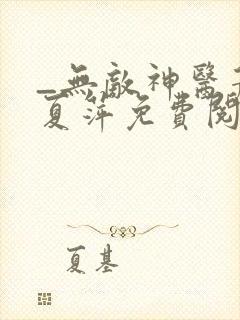 _無敵神醫
夏萍免費閱
夏基